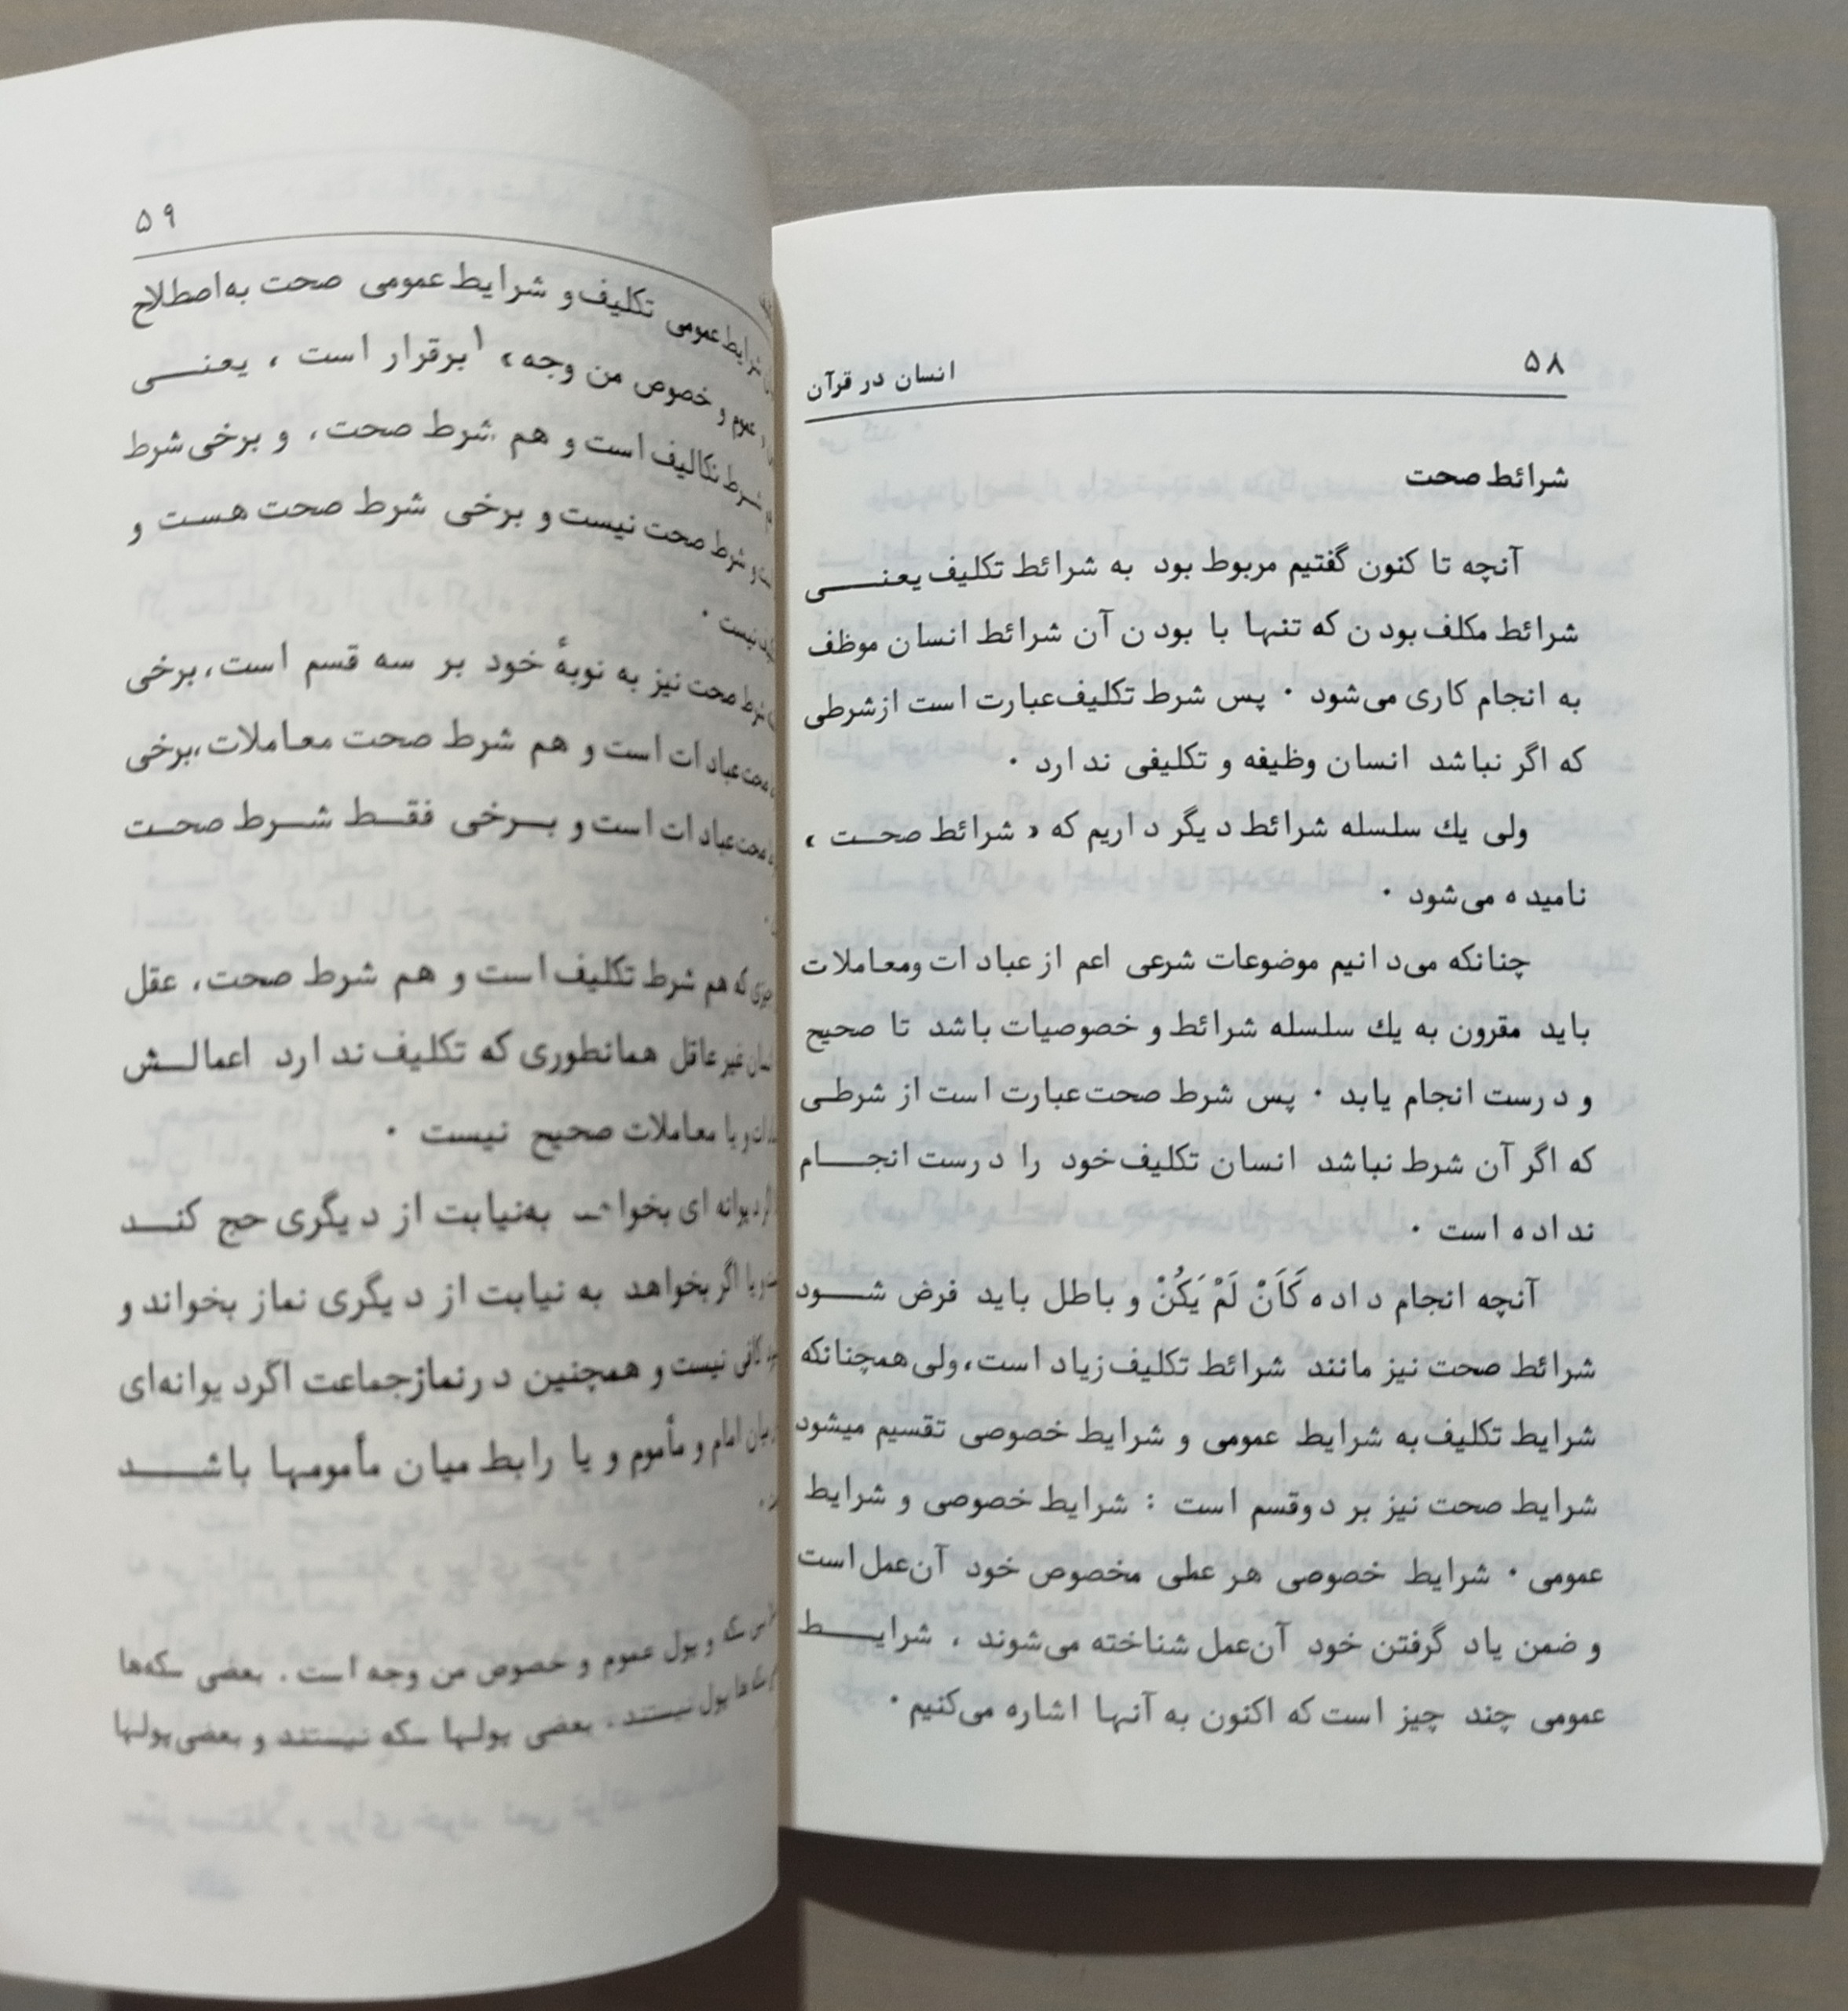 ۵۸
انسان در قرآن
شرائط صحت
آنچه تا کنون گفتیم مربوط بود به شرائط تکلیف یعنـــی
شرائط مکلف بودن که تنها با بودن آن شرائط انسان موظف
به انجام کاری می‌شود . پس شرط تکلیف عبارت است از شرطی
که اگر نباشد انسان وظیفه و تکلیفی ندارد .
ولی یك سلسله شرائط دیگر داریم که « شرائط صحــت »
نامیده می‌شود .
چنانکه می‌دانیم موضوعات شرعی اعم از عبادات ومعاملات
باید مقرون به یك سلسله شرائط و خصوصیات باشد تا صحیح
و درست انجام یابد . پس شرط صحت عبارت است از شرطـی
که اگر آن شرط نباشد انسان تکلیف خود را درست انجــام
نداده است .
آنچه انجام داده کَاَنْ لَمْ یَکُنْ و باطل باید فرض شــود
شرائط صحت نیز مانند شرائط تکلیف زیاد است، ولی همچنانکه
شرایط تکلیف به شرایط عمومی و شرایط خصوصی تقسیم میشود
شرایط صحت نیز بر دوقسم است : شرایط خصوصی و شرایط
عمومی . شرایط خصوصی هر عملی مخصوص خود آن عمل است
و ضمن یاد گرفتن خود آن عمل شناخته می‌شوند ، شرایــط
عمومی چند چیز است که اکنون به آنها اشاره می‌کنیم .
۵۹
شرایط عمومی تکلیف و شرایط عمومی صحت به اصطلاح
عموم و خصوص من وجه »۱ برقرار است ، یعنــی
شرط تکالیف است و هم شرط صحت، و برخی شرط
شرط صحت نیست و برخی شرط صحت هست و
نیست .
شرط صحت نیز به نوبهٔ خود بر سه قسم است، برخی
صحت عبادات است و هم شرط صحت معاملات، برخی
صحت عبادات است و بــرخی فقــط شــرط صحــت
که هم شرط تکلیف است و هم شرط صحت، عقل
غیر عاقل همانطوری که تکلیف ندارد اعمالــش
و یا معاملات صحیح نیست .
دیوانه ای بخواهد به نیابت از دیگری حج کنــد
و یا اگر بخواهد به نیابت از دیگری نماز بخواند و
کافی نیست و همچنین در نماز جماعت اگر دیوانه‌ای
میان امام و مأموم و یا رابط میان مأمومها باشــد
سکه و پول عموم و خصوص من وجه است . بعضی سکه‌ها
پول نیستند ، بعضی پولها سکه نیستند و بعضی پولها